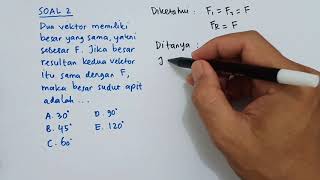 SOAL 2
Dua vektor memiliki
besar yang sama, yakni
sebesar F. Jika besar
resultan kedua vektor
itu sama dengan F,
maka besar sudut apit
adalah ...
A. 30° D. 90°
B. 45° E. 120°
C. 60°
Diketahui : F₁ = F₂ = F
F_R = F
Ditanya :